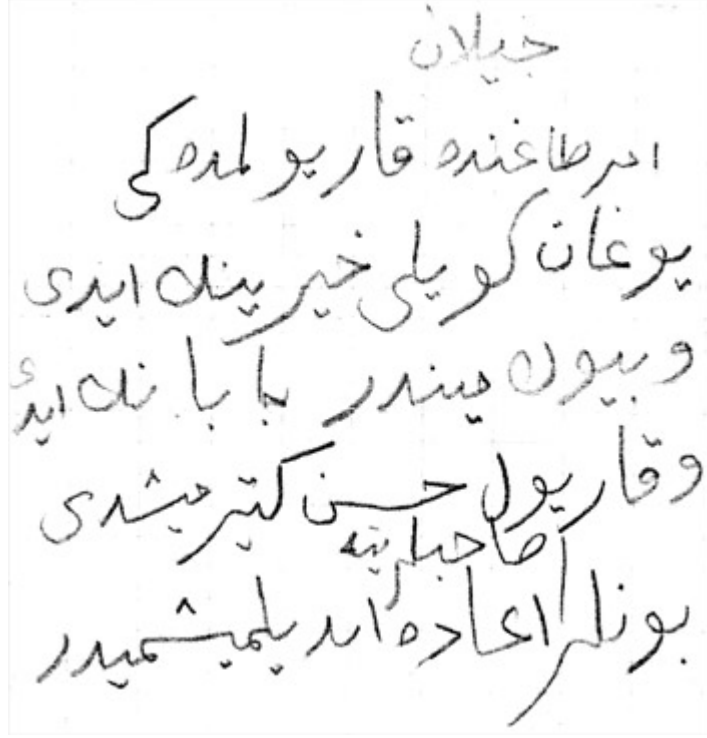 جيلان
امر طاغنده قاريولمده كى
يوغان كويلى خيرينك ايدى
وبيوك ميندر بابانك ايدى
وقاريول حسن كتيرميشدى
صاحبلرينه
بونلر اعاده ايديلميشميدر